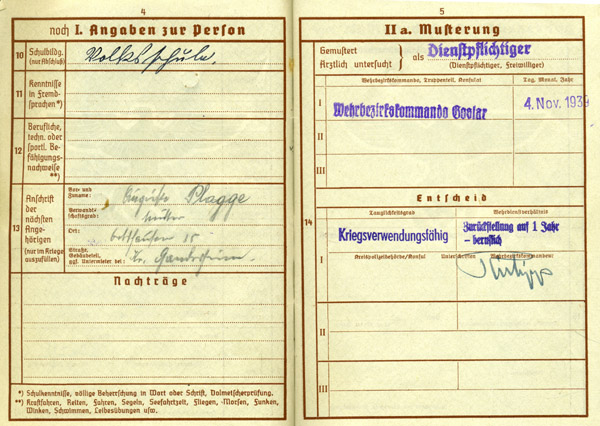 4
noch I. Angaben zur Person
10 Schulbildg. (nur Abschluß)
Volksschule.
11 Kenntnisse in Fremdsprachen*)
12 Berufliche, techn. oder sportl. Befähigungsnachweise **)
13 Anschrift der nächsten Angehörigen (nur im Kriege auszufüllen)
Vor- und Zuname:
Auguste Plagge
Verwandtschaftsgrad:
Mutter
Ort:
15
Straße, Gebäudeteil, ggf. Untermieter bei:
Kr. Gandersheim.
Nachträge
*) Schulkenntnisse, völlige Beherrschung in Wort oder Schrift, Dolmetscherprüfung.
**) Kraftfahren, Reiten, Fahren, Segeln, Seefahrtzeit, Fliegen, -Morsen, Funken,
Winken, Schwimmen, Leibesübungen usw.
5
II a. Musterung
Gemustert
Ärztlich untersucht } als
Dienstpflichtiger
(Dienstpflichtiger, Freiwilliger)
Wehrbezirkskommando, Truppenteil, Konsulat
Tag, Monat, Jahr
I
Wehrbezirkskommando Goslar
4. Nov. 1939
II
III
Entscheid
14
Tauglichkeitsgrad
Wehrdienstverhältnis
Kriegsverwendungsfähig
Zurückstellung auf 1 Jahr
– beruflich
I
Kreispolizeibehörde/Konsul
Unterschriften
Wehrbezirkskommandeur:
II
III